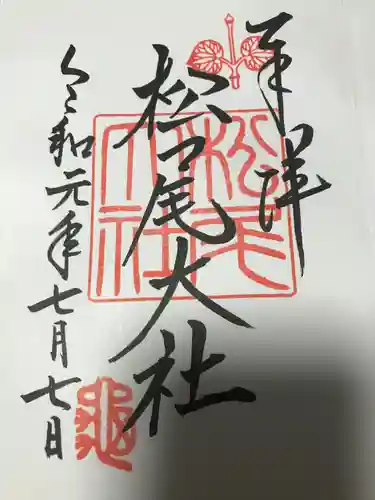 奉拝
松尾大社
令和元年七月七日
松尾大社